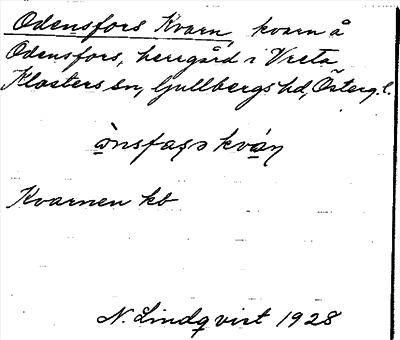 Odensfors Kvarn, kvarn å
Odensfors, herrgård i Vreta
Klosters sn, Gullbergs hd, Österg. l.
ònsfaʂs kvàɳ
Kvarnen kb
N. Lindqvist 1928